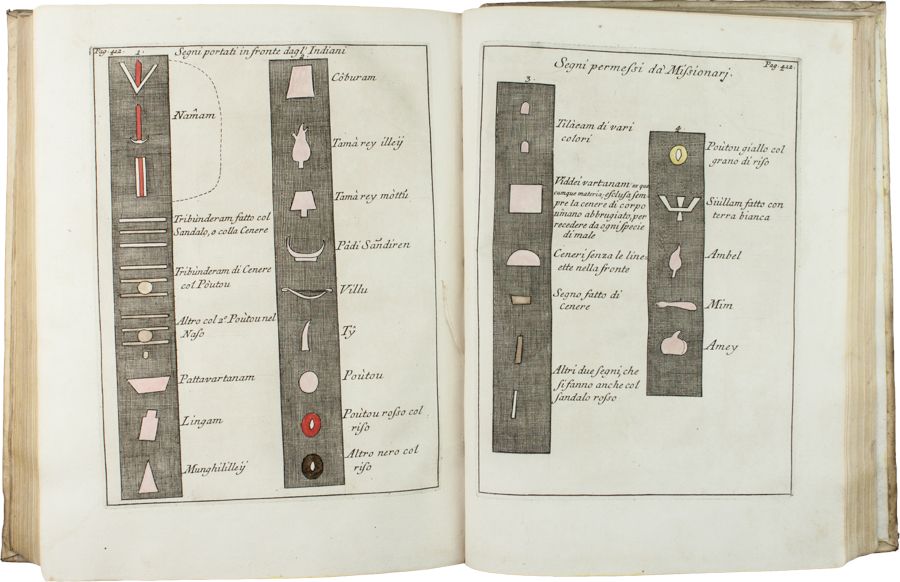 Pag. 412.
1.
Segni portati in fronte dagl' Indiani
2
Namam
Tribùnderam fatto col
Sandalo, o colla Cenere
Tribùnderam di Cenere
col Pòutou
Altro col 2º Poùtou nel
Naso
Pattavartanam
Lingam
Munghililleÿ
Còburam
Tamà rey illeÿ
Tamà rey mòttú
Pàdi Sandiren
Villu
Tÿ
Poùtou
Poùtou rosso col
riso
Altro nero col
riso
Segni permessi dà Missionarj.
Pag. 412.
3.
Tilàcam di varì
colori
Viddei vartanam
cumque materia, esclusa sem
pre la cenere di corpo
umano abbrugiato, per
recedere da ogni specie
di male
Ceneri senza le line
ette nella fronte
Segno fatto di
Cenere
Altri due segni, che
si fanno anche col
sandalo rosso
4
Poùtou giallo col
grano di riso
Siùllam fatto con
terra bianca
Ambel
Mim
Amey